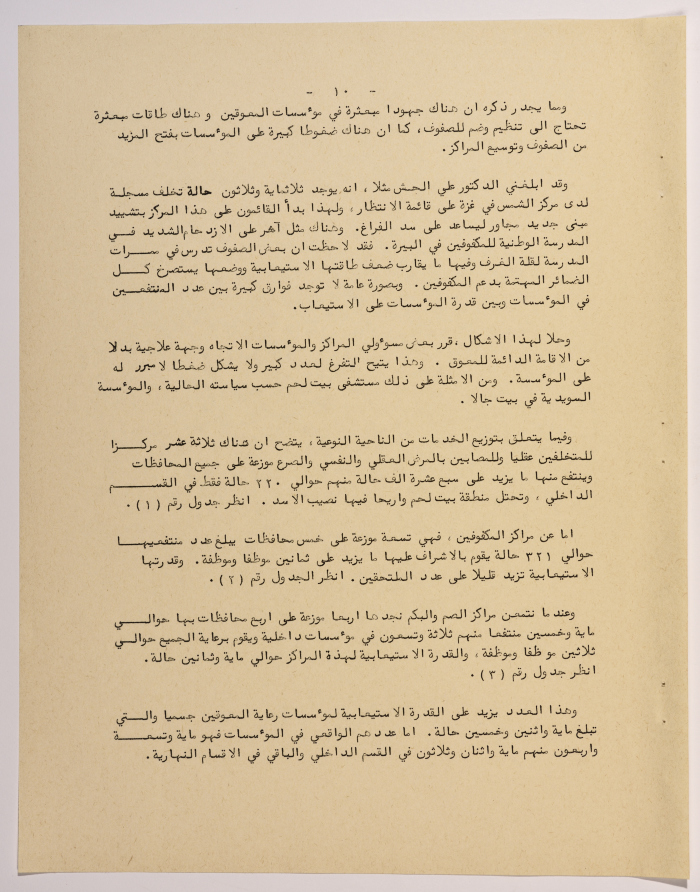 - ١٠ -
ومما يجدر ذكره ان هناك جهودا مبعثرة في مؤسسات المعوقين و هناك طاقات مبعثرة
تحتاج الى تنظيم وضم للصفوف، كما ان هناك ضغوطا كبيرة على المؤسسات بفتح المزيد
من الصفوف وتوسيع المراكز.
وقد ابلغني الدكتور علي الحش مثلا ، انه يوجد ثلاثماية وثلاثون حالة تخلف مسجلة
لدى مركز الشمس في غزة على قائمة الانتظار، ولهذا بدأ القائمون على هذا المركز بتشييد
مبنى جديد مجاور ليساعد على سد الفراغ. وهناك مثل آخر على الازدحام الشديد فـــي
المدرسة الوطنية للمكفوفين في البيرة. فقد لاحظت ان بعض الصفوف تدرس في ممـــرات
المدرسة لقلة الغرف وفيها ما يقارب ضعف طاقتها الاستيعابية ووضعها يستصرخ كـــل
الضمائر المهتمة بدعم المكفوفين. وبصورة عامة لا توجد فوارق كبيرة بين عدد المنتفعـــين
في المؤسسات وبين قدرة المؤسسات على الاستيعاب.
وحلا لهذا الاشكال ،قرر بعض مسؤولي المراكز والمؤسسات الاتجاه وجهة علاجية بدلا
من الاقامة الدائمة للمعوق . وهذا يتيح التفرغ لعدد كبير ولا يشكل ضغطا لا مبرر له
على المؤسسة. ومن الامثلة على ذلك مستشفى بيت لحم حسب سياسته الحالية، والمؤسسة
السويدية في بيت جالا .
وفيما يتعلق بتوزيع الخدمات من الناحية النوعية، يتضح ان هناك ثلاثة عشر مركـــزا
للمتخلفين عقليا وللمصابين بالمرض العقلي والنفسي والصرع موزعة على جميع المحافظات
وينتفع منها ما يزيد على سبع عشرة الف حالة منهم حوالي ٢٢٠ حالة فقط في القســـم
الداخلي ، وتحتل منطقة بيت لحم واريحا فيها نصيب الاسد . انظر جدول رقم (١) .
اما عن مراكز المكفوفين ، فهي تسعة موزعة على خمس محافظات يبلغ عدد منتفعيهـــا
حوالي ٣٢١ حالة يقوم بالاشراف عليها ما يزيد على ثمانين موظفا وموظفة. وقدرتها
الاستيعابية تزيد قليلا على عدد الملتحقين . انظر الجدول رقم (٢) .
وعندما نتمعن مراكز الصم والبكم نجدها اربعا موزعة على اربع محافظات بها حوالـــي
ماية وخمسين منتفعا منهم ثلاثة وتسعون في مؤسسات داخلية ويقوم برعاية الجميع حوالـي
ثلاثين موظفا وموظفة، والقدرة الاستيعابية لهذة المراكز حوالي ماية وثمانين حالة.
انظر جدول رقم (٣) .
وهذا العدد يزيد على القدرة الاستيعابية لمؤسسات رعاية المعوقين جسميا والـــتي
تبلغ ماية واثنين وخمسين حالة. اما عددهم الواقعي في المؤسسات فهو ماية وتسعـــة
واربعون منهم ماية واثنان وثلاثون في القسم الداخلي والباقي في الاقسام النهارية.